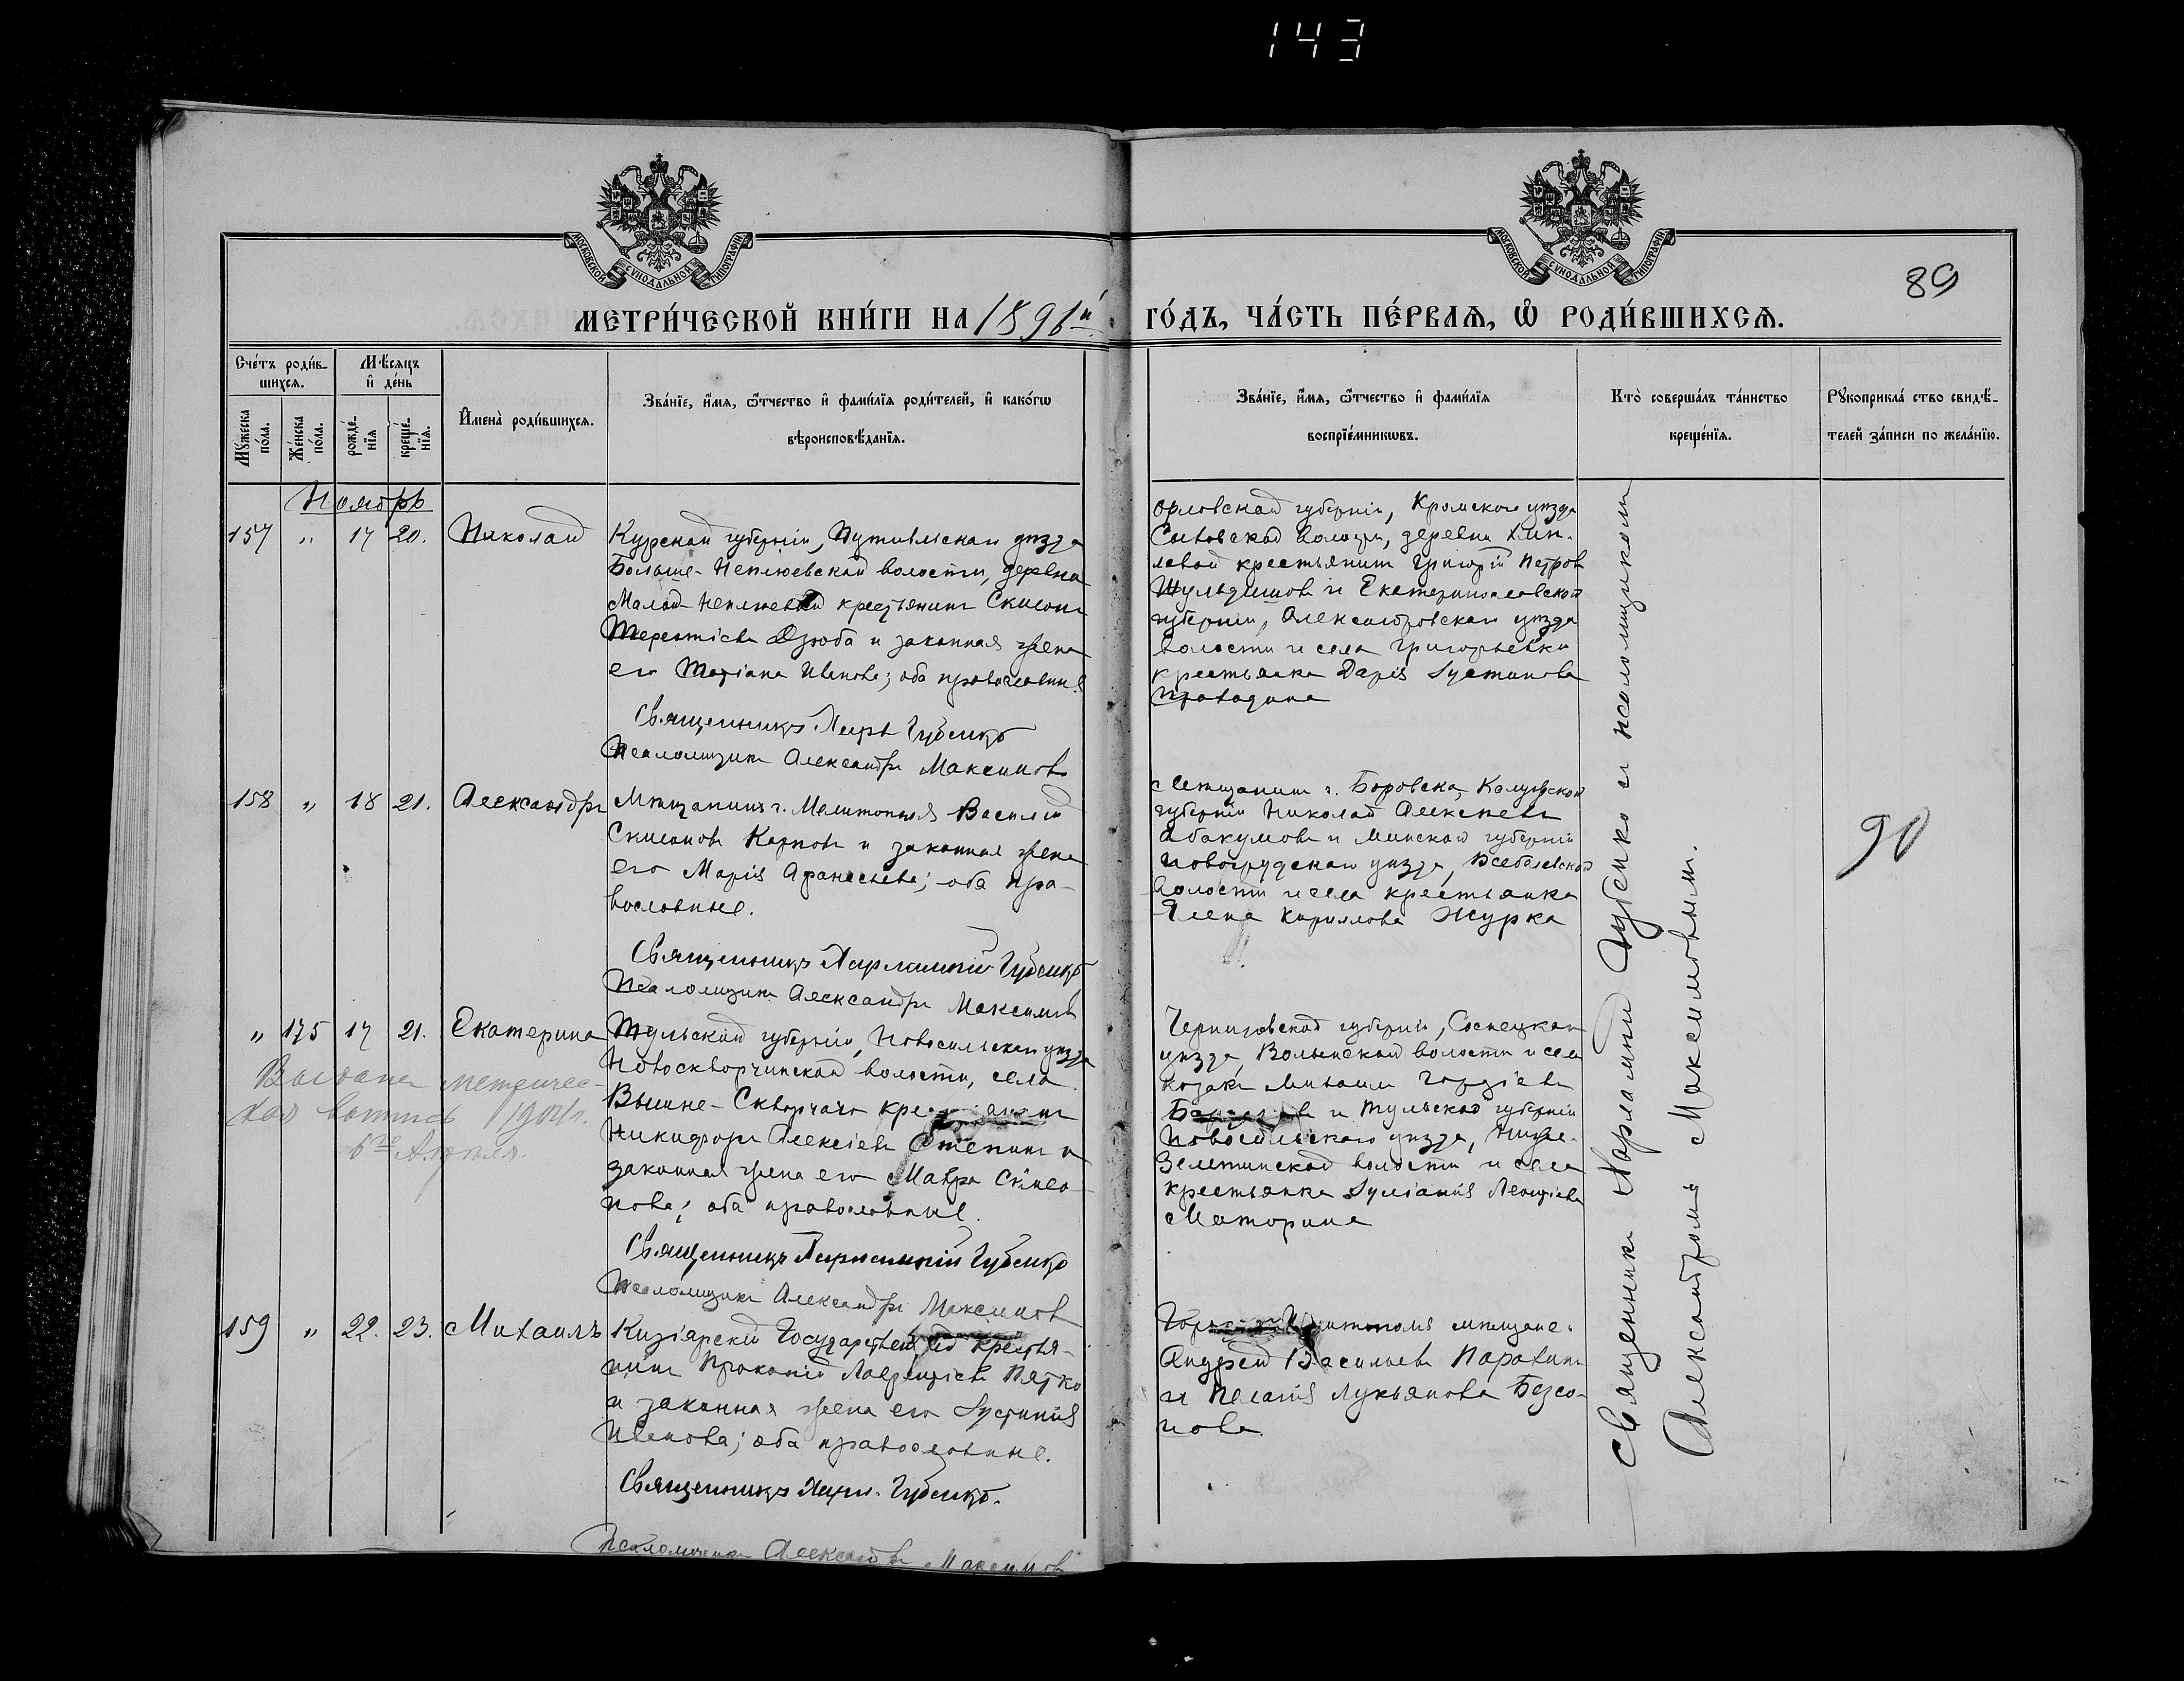 143
МОСКОВСКОЙ СѴНОДАЛЬНОЙ ТИПОГРАФІИ
МОСКОВСКОЙ СѴНОДАЛЬНОЙ ТИПОГРАФІИ
89
МЕТРИ́ЧЕСКОЙ КНИ́ГИ НА 1891й ГО́ДЪ, ЧА́СТЬ ПЕ́РВАѦ, Ѡ҆ РОДИ́ВШИХСѦ.
Сче́тъ роди́в-
шихсѧ.
Мѣ́сѧцъ
и҆ де́нь
Мꙋ́жеска
по́ла.
Же́нска
по́ла.
рожде́-
нїѧ
креще́-
нїѧ.
И҆мена̀ роди́вшихсѧ.
Зва́нїе, и҆́мѧ, ѻ҆́тчество и҆ фами́лїѧ роди́телей, и҆ како́гѡ
вѣроисповѣ́данїѧ.
Зва́нїе, и҆́мѧ, ѻ҆́тчество и҆ фами́лїѧ
воспрїе́мникѡвъ.
Кто̀ соверша́лъ та́инство
креще́нїѧ.
Рꙋкоприкла́ ство свидѣ́-
телей за́писи по жела́нїю.
Ноябрь
157 " 17 20. Николай
Курской губерніи, Путивльскаго уѣзда
Больше-Неплюевской волости, деревни
Мало-Неплюевой крестьянинъ Симеонъ
Терентіевъ Дзюба и законная жена
его Татіана Иванова; оба православные.
Священникъ Харл. Губенко
Псаломщикъ Александръ Максимовъ
Орловской губерніи, Кромскаго уѣзда
волости, деревни
крестьянинъ Григорій Петровъ
и Екатеринославской
губерніи, Александровскаго уѣзда
волости и села Григорьевки
крестьянка Дарія Іустинова
158 " 18 21. Александръ
Мѣщанинъ г. Мелитополя Василій
Симеоновъ Карповъ и законная жена
его Марія Афанасьева; оба пра-
вославные.
Священникъ Харлампій Губенко
Псаломщикъ Александръ Максимовъ
Мѣщанинъ г. Боровска, Калужской
губерніи Николай Алексѣевъ
Абакумовъ и Минской губерніи
Новогрудскаго уѣзда, Вселюбской
волости и села крестьянка
Елена Кириллова Журка
90
" 175 17 21. Екатерина
Выдана метричес-
кая выпись 1904 г.
6го Апреля.
Тульской губерніи, Новосильскаго уѣзда
Новоскворчинской волости, села
Вышне-Скворчаго крестьянинъ
Никифоръ Алексіевъ Степинъ и
законная жена его Мавра Симео-
нова; оба православные.
Священникъ Харлампій Губенко
Псаломщикъ Александръ Максимовъ
Черниговской губерніи, Сосницкаго
уѣзда, Волынской волости и села
козакъ Михаилъ Гордіевъ
и Тульской губерніи
Новосильскаго уѣзда,
волости и села
крестьянка Іуліанія Леонтіева
Маторина
159 " 22. 23. Михаилъ
Кизіярскій Государственный крестья-
нинъ Прокопій Лаврентіевъ Пятко
и законная жена его Іустинія
Иванова; оба православные.
Священникъ Харл. Губенко.
Псаломщикъ Александръ Максимовъ
Города Мелитополя мѣщане:
Андрей Васильевъ Парахинъ
и Пелагія Лукьянова Безсо-
нова.
Священникъ Харлампій Губенко съ псаломщикомъ
Александромъ Максимовымъ.